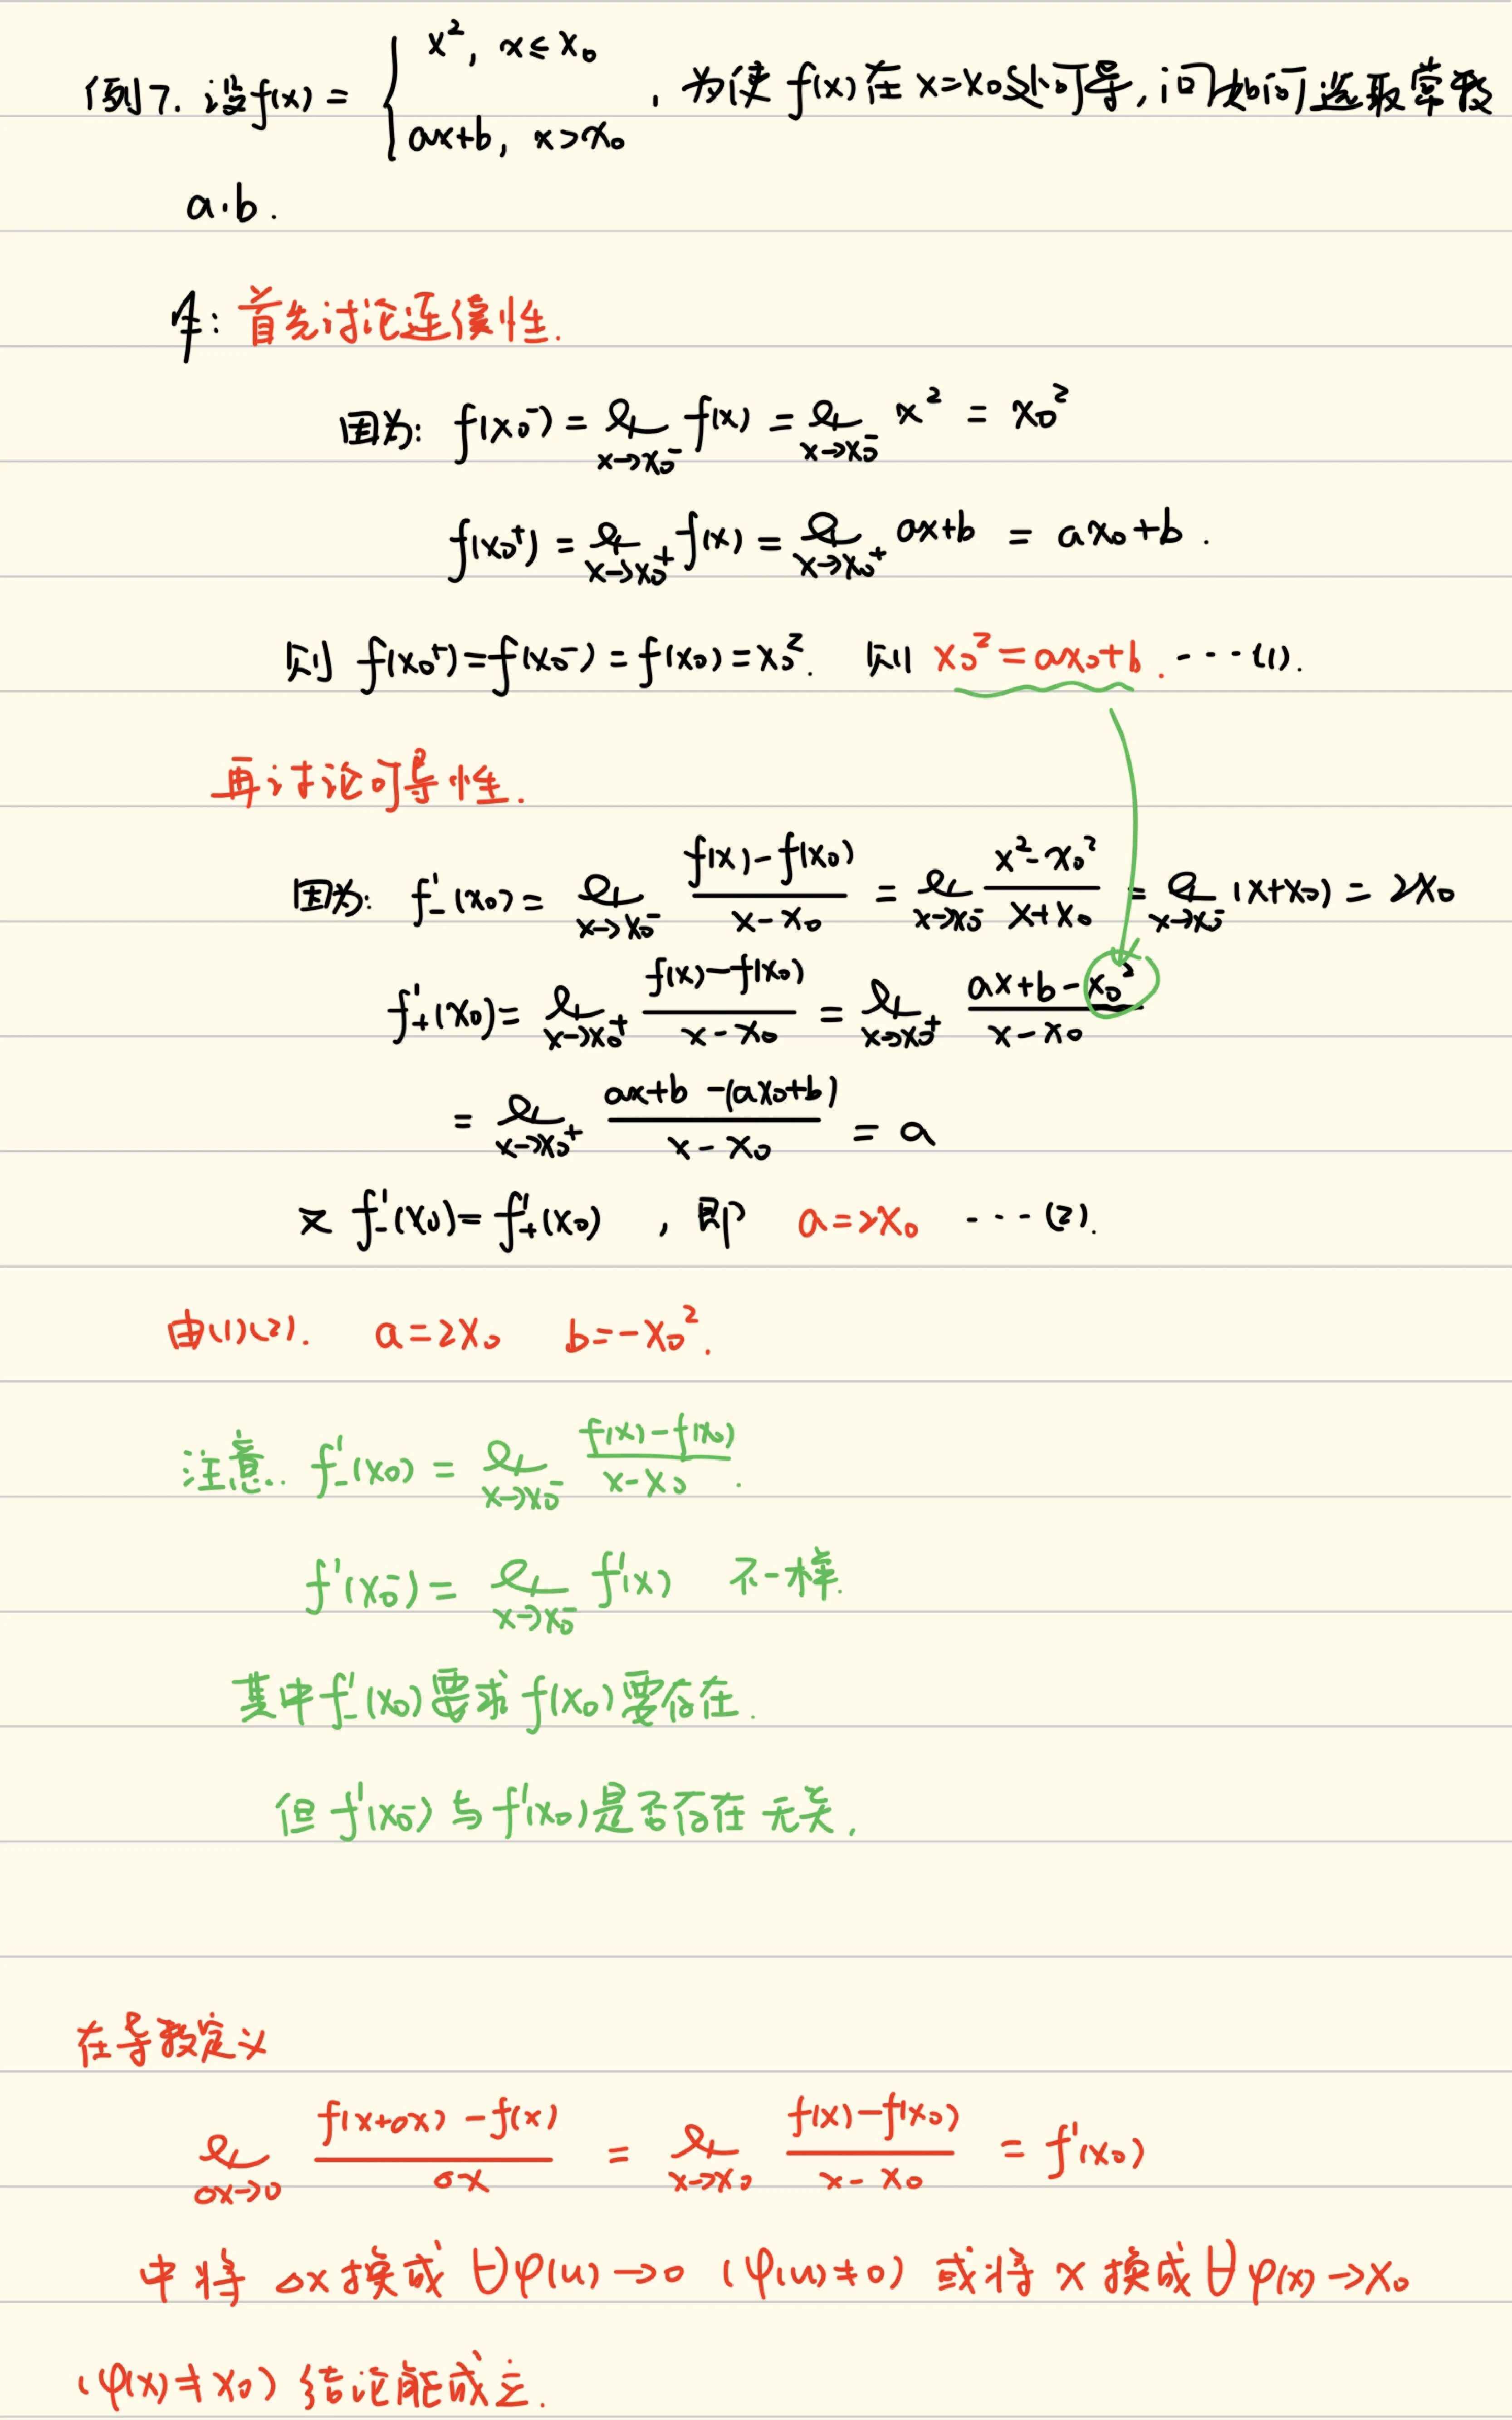 例7. 设f(x) = { x², x≤x₀ ; ax+b, x>x₀ . 为使 f(x) 在 x=x₀处可导,问如何选取常数
a.b.
解: 首先讨论连续性.
因为: f(x₀⁻) = lim_{x→x₀⁻} f(x) = lim_{x→x₀⁻} x² = x₀²
f(x₀⁺) = lim_{x→x₀⁺} f(x) = lim_{x→x₀⁺} ax+b = ax₀+b .
则 f(x₀⁺)=f(x₀⁻)=f(x₀)=x₀². 则 x₀²=ax₀+b. ···(1).
再讨论可导性.
因为: f'₋(x₀) = lim_{x→x₀⁻} (f(x)-f(x₀))/(x-x₀) = lim_{x→x₀⁻} (x²-x₀²)/(x+x₀) = lim_{x→x₀⁻} (x+x₀) = 2x₀
f'₊(x₀) = lim_{x→x₀⁺} (f(x)-f(x₀))/(x-x₀) = lim_{x→x₀⁺} (ax+b-x₀²)/(x-x₀)
= lim_{x→x₀⁺} (ax+b-(ax₀+b))/(x-x₀) = a
又 f'₋(x₀)=f'₊(x₀) , 即 a=2x₀ ···(2).
由(1)(2). a=2x₀ b=-x₀².
注意. f'₋(x₀) = lim_{x→x₀⁻} (f(x)-f(x₀))/(x-x₀) .
f'(x₀⁻) = lim_{x→x₀⁻} f'(x) 不一样.
其中f'₋(x₀)要求f(x₀)要存在.
但f'(x₀⁻)与f'(x₀)是否存在无关.
在导数定义
lim_{△x→0} (f(x+△x)-f(x))/△x = lim_{x→x₀} (f(x)-f(x₀))/(x-x₀) = f'(x₀)
中将 △x换成∀φ(u)→0 (φ(u)≠0) 或将 x 换成∀φ(x)→x₀
(φ(x)≠x₀) 结论能成立.